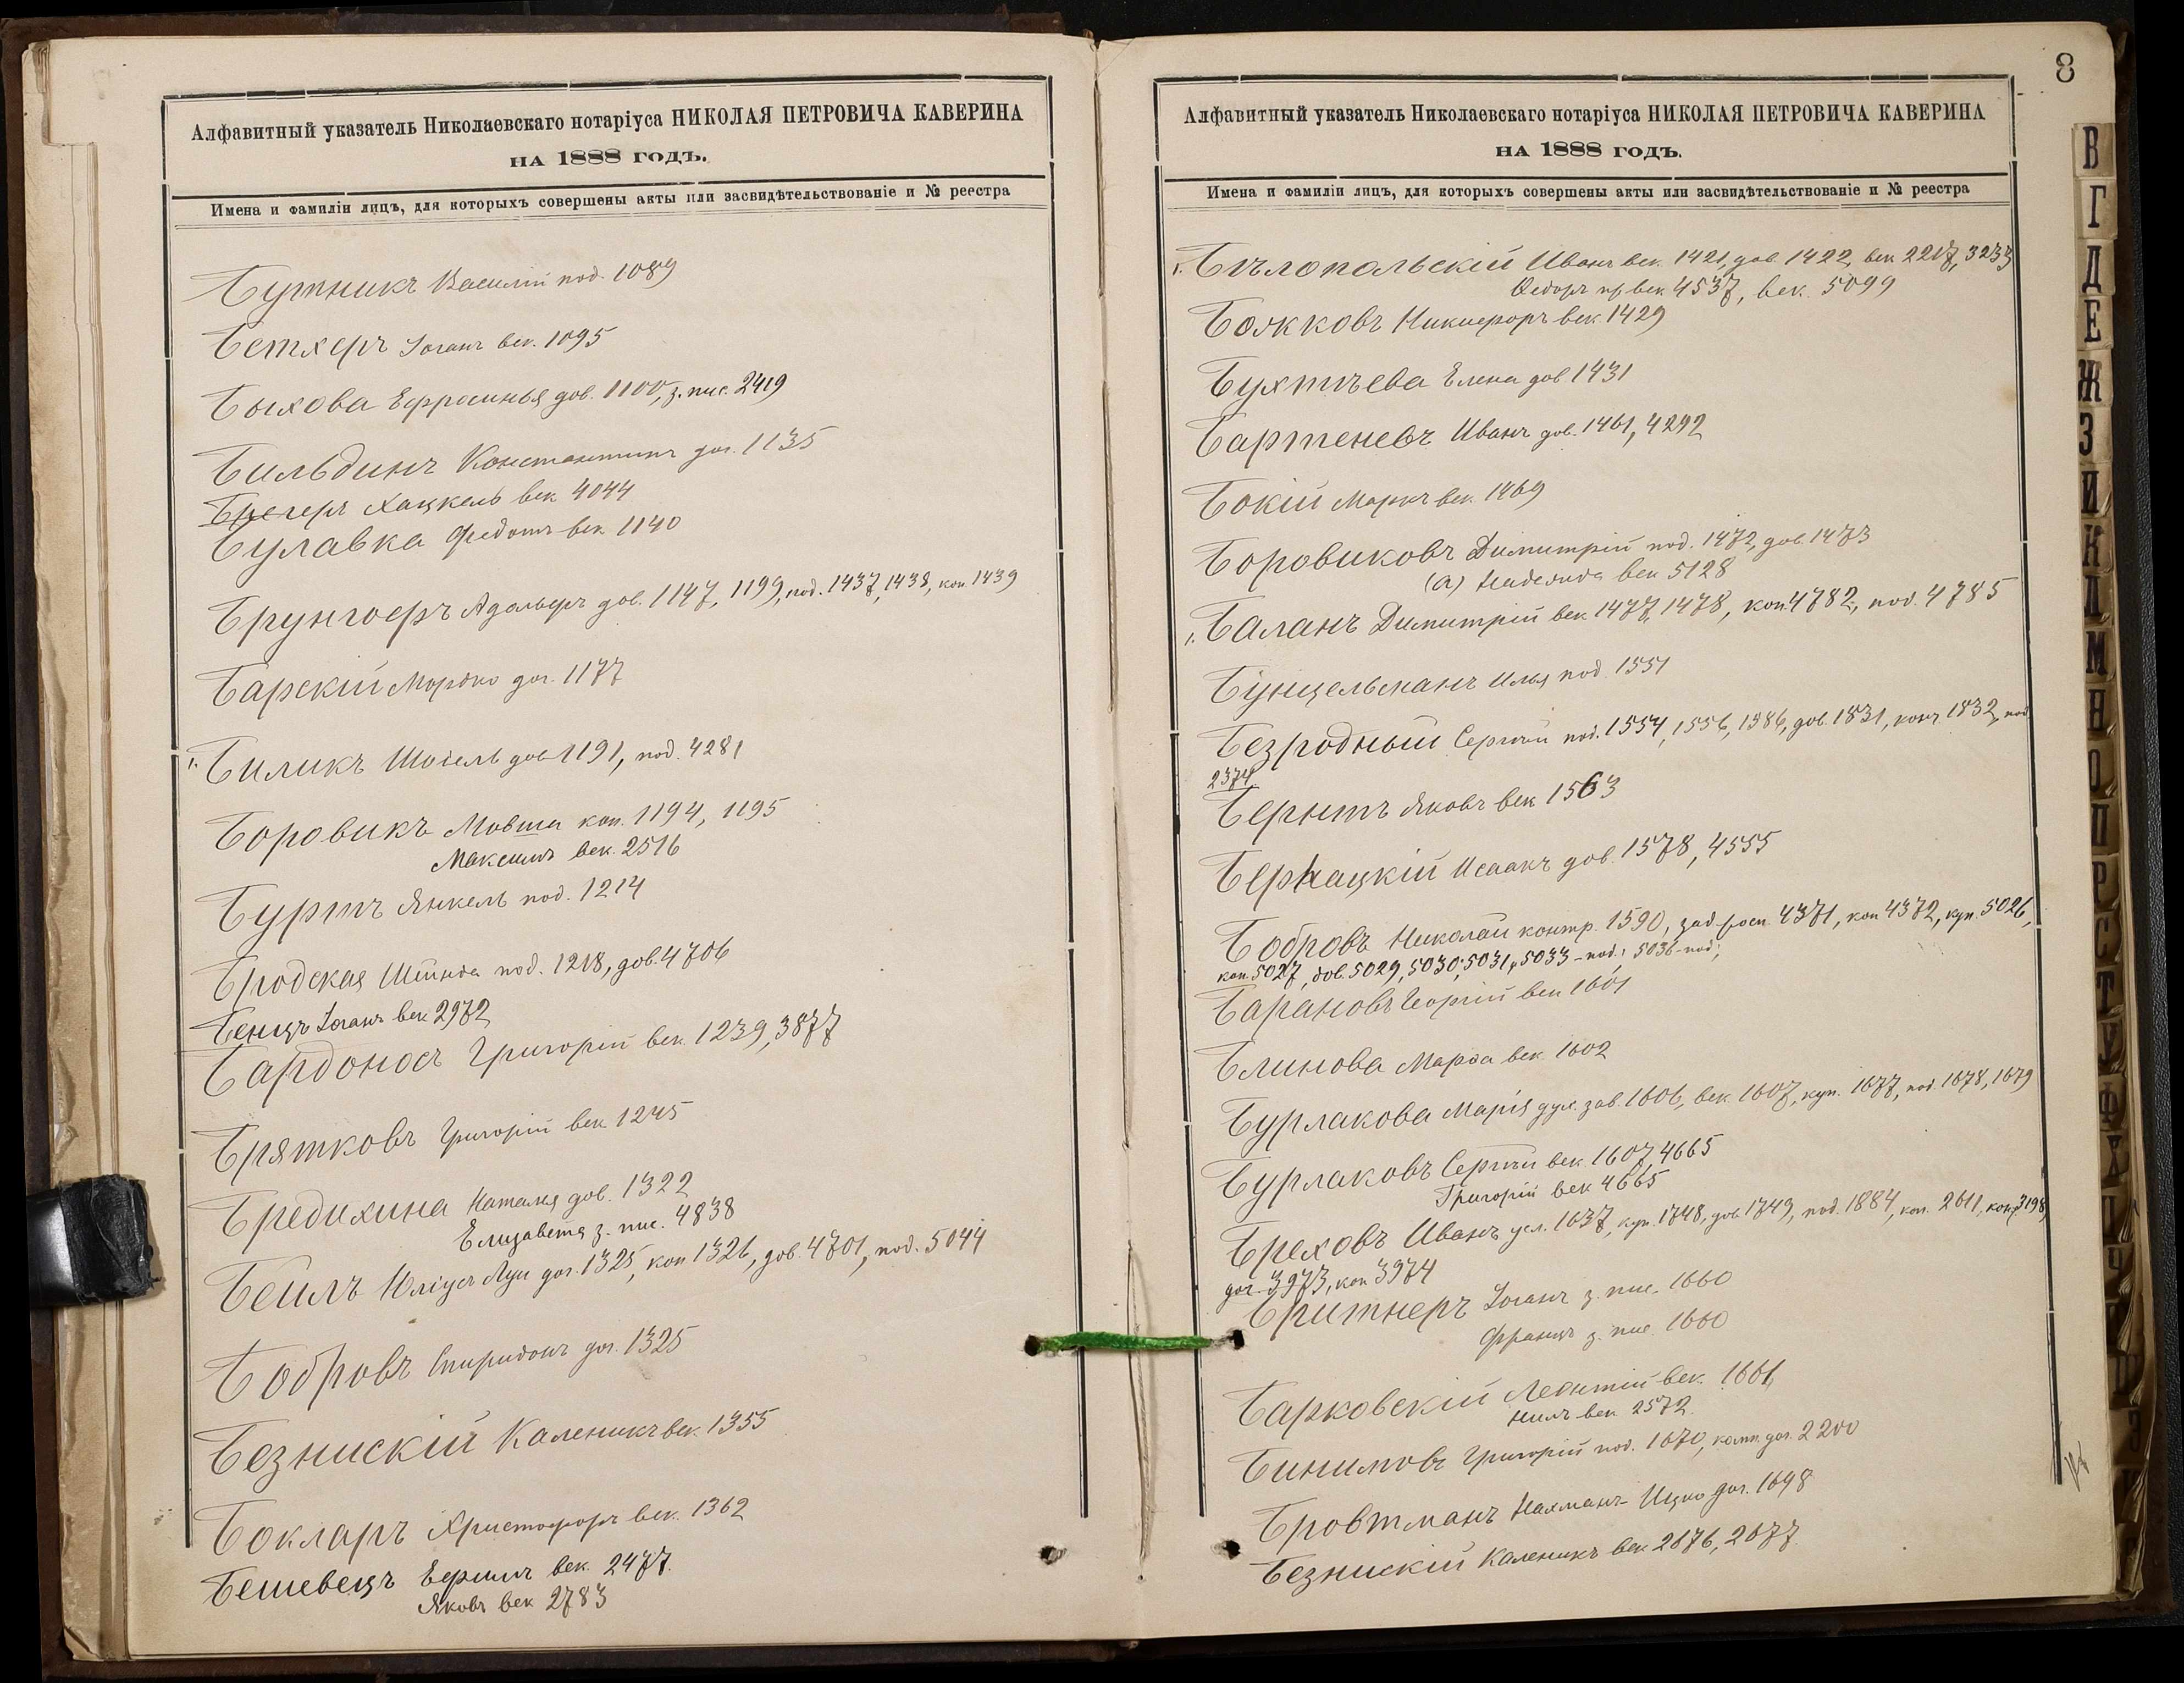 Алфавитный указатель Николаевскаго нотаріуса НИКОЛАЯ ПЕТРОВИЧА КАВЕРИНА
НА 1888 ГОДЪ.
Имена и фамиліи лицъ, для которыхъ совершены акты или засвидѣтельствованіе и № реестра
Бутникъ Василій под. 1089
Бетхеръ Іоганъ век. 1095
Быхова Ефросинья дов. 1100, з. пис. 2419
Бильдинъ Константинъ дог. 1135
Брегеръ Хацкель век 4044
Булавка Федотъ век 1140
Брунгоеръ Адольфъ дов. 1147, 1199, под. 1437, 1438, коп 1439
Барскій Мордко дог. 1177
1. Биликъ дов 1191, под. 4281
Боровикъ Мовша коп. 1194, 1195
Максимъ век. 2516
Буртъ Янкель под. 1214
Бродская Шейнда под. 1218, дов. 4706
Бенцъ Іоганъ век 2972
Бардоносъ Григорій век. 1239, 3877
Брятковъ Григорій век 1245
Бредихина Наталья дов. 1322
Елизавета з. пис. 4838
Бейлъ Юліусъ Луи дог. 1325, коп 1326, дов. 4701, под. 5044
Бобровъ Спиридонъ дог. 1325
Безнискій Каленикъ век. 1355
Бокларъ Христофоръ век. 1362
Бешевецъ Ефимъ век. 2477.
Яковъ век 2783
8
Алфавитный указатель Николаевскаго нотаріуса НИКОЛАЯ ПЕТРОВИЧА КАВЕРИНА
НА 1888 ГОДЪ.
Имена и фамиліи лицъ, для которыхъ совершены акты или засвидѣтельствованіе и № реестра
1. Бѣлопольскій Иванъ век. 1421, дов 1422, век 2217, 3233
Ѳедоръ пр век 4537, век. 5099
Божковъ Никифоръ век 1429
Бухтѣева Елена дов 1431
Бартеневъ Иванъ дов. 1461, 4292
Бокій Маркъ век. 1469
Боровиковъ Димитрій под. 1472, дов. 1473
(а) Надежда век 5128
1. Баланъ Димитрій век 1477, 1478, коп 4782, под. 4785
Бунцельманъ Илья под 1551
Безродный Сергѣй под. 1554, 1556, 1386, дов. 1831, конт 1832, под
2374
Берштъ Яковъ век 1563
Бернацкій Исаакъ дов. 1578, 4555
Бобровъ Николай контр. 1590, зад. росп 4371, коп 4372, куп. 5026,
коп. 5027, дов. 5029, 5030, 5031, 5033 - под. 5036 - под;
Барановъ Георгій век 1601
Блинова Марѳа век. 1602
Бурлакова Марія дух. зав. 1606, век. 1607, куп. 1677, под. 1678, 1679
Бурлаковъ Сергѣй век 1607, 4665
Григорій век 4665
Бреховъ Иванъ усл. 1637, куп. 1748, дов 1749, под. 1884, коп. 2611, коп 3198,
дог. 3973, коп 3974
Бритнеръ Іоганъ з. пис. 1660
Францъ з. пис. 1660
Барковскій Леонтій век. 1661,
Нилъ век 2572.
Бинимовъ Григорій под. 1670, дог. 2200
Бровтманъ Нахманъ-Ицко дог. 1698
Безнискій Каленикъ век 2676, 2677.
В
Г
Д
Е
Ж
З
И
К
Л
М
Н
О
П
Р
С
Т
У
Ф
Х
Ц
Ч